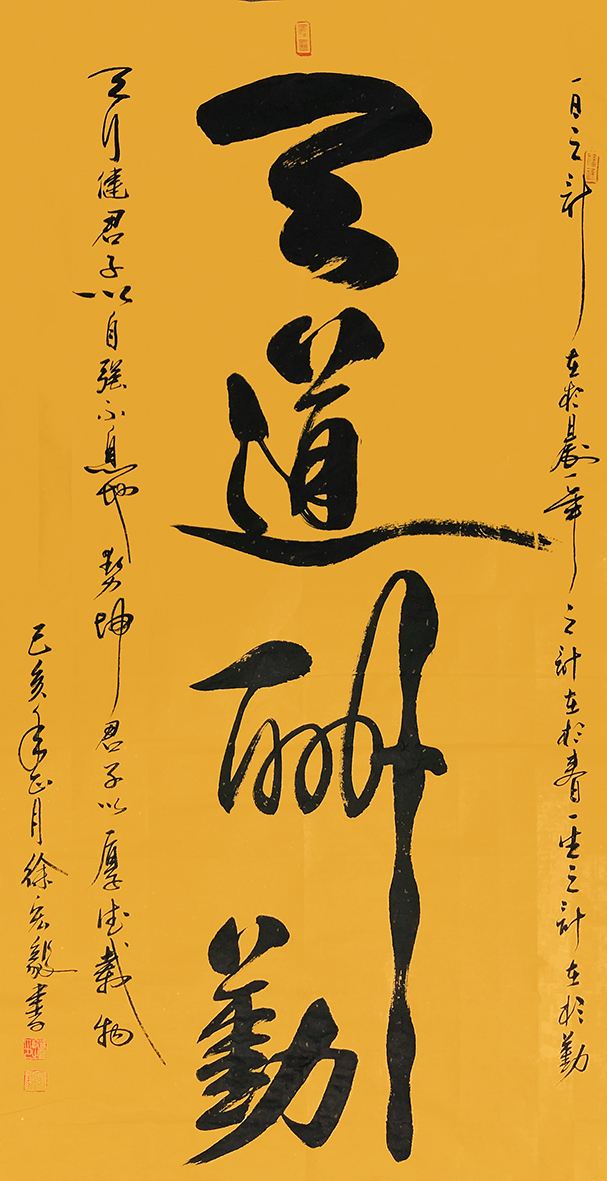 一日之计
在于晨一年
之计在于春一生之计在于勤
天道酬勤
天行健君子以自强不息地势坤君子以厚德载物
己亥年正月徐宏毅书